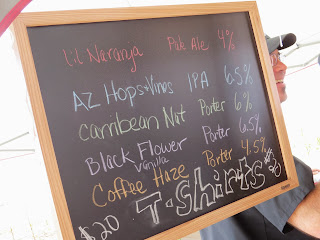 Lil Naranja Pale Ale 4%
AZ Hops+Vines IPA 6.5%
Carribean Nut Porter 6%
Black Flower Porter 6.5%
Vanilla
Coffee Haze Porter 4.5%
$20 T-Shirts